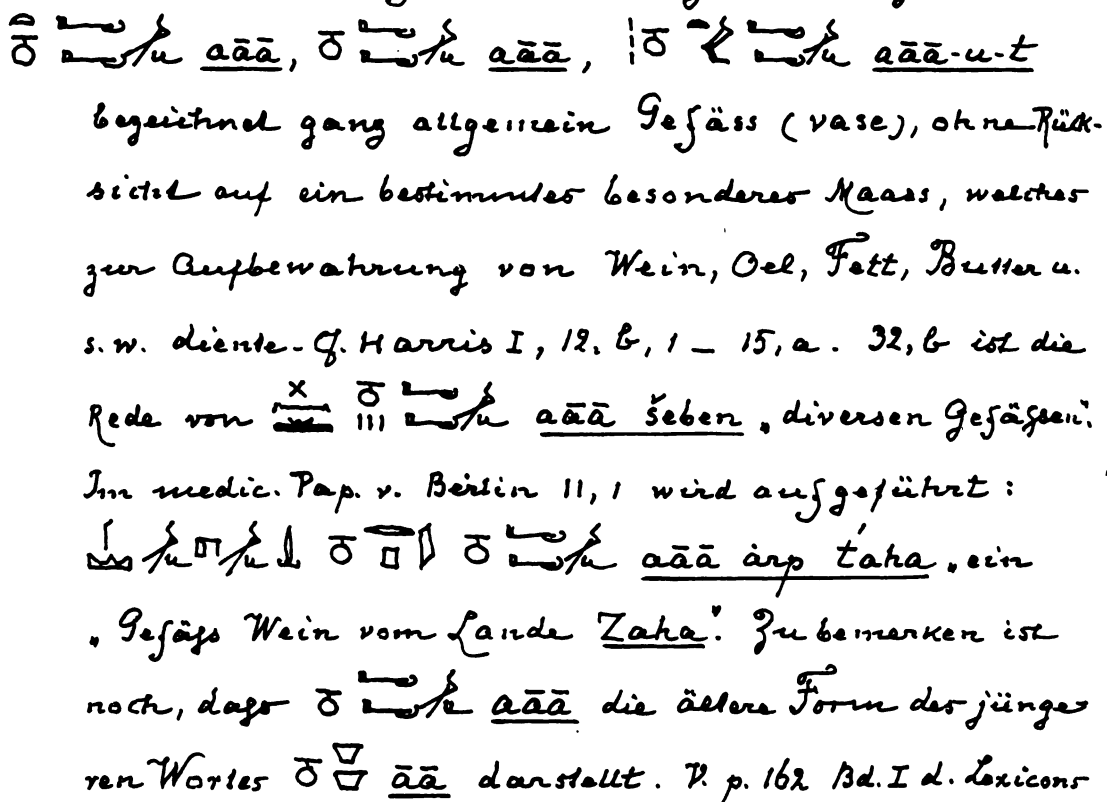 aāā, aāā, aāā-u-t
bezeichnet ganz allgemein Gefäss (vase), ohne Rück-
sicht auf ein bestimmtes besonderes Maass, welches
zur Aufbewahrung von Wein, Oel, Fett, Butter u.
s. w. diente. Cf. Harris I, 12, b, 1 – 15, a. 32, b ist die
Rede von aāā šeben „diversen Gefässen“.
Im medic. Pap. v. Berlin 11, 1 wird aufgeführt:
aāā àrp t́aha „ein
„Gefäss Wein vom Lande Zaha“. Zu bemerken ist
noch, dass aāā die ältere Form des jünge-
ren Wortes āā darstellt. V. p. 162 Bd. I d. Lexicons